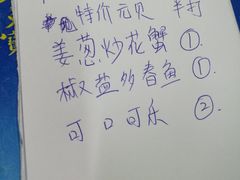 特价元贝 半打
姜葱炒花蟹 ①.
椒盐多春鱼 ①.
可口可乐 ②.